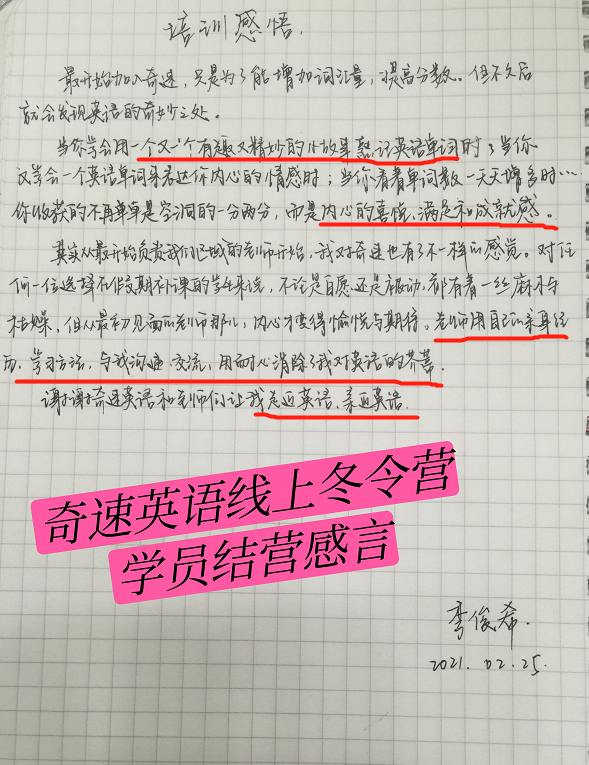 培训感悟.
最开始加入奇速，只是为了能增加词汇量，提高分数。但不久后
就会发现英语的奇妙之处。
当你学会用一个又一个有趣又精妙的小故事熟记英语单词时；当你
又学会一个英语单词来表达你内心的情感时；当你看着单词数一天天增多时…
你收获的不再单单是学词的一分两分，而是内心的喜悦、满足和成就感。
其实从最开始负责我们的老师开始，我对奇速也有了不一样的感觉。对任
何一位选择在假期补课的学生来说，不论是自愿还是被动，都有着一丝麻木与
枯燥，但从最初见面的老师那儿，内心才变得愉悦与期待。老师用自己的亲身经
历、学习方法，与我沟通、交流，用耐心消除了我对英语的芥蒂.
谢谢奇速英语和老师们让我走近英语、亲近英语.
奇速英语线上冬令营
学员结营感言
俊希.
2021.02.25.